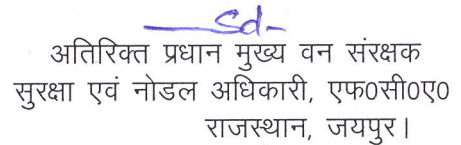 Sd-
अतिरिक्त प्रधान मुख्य वन संरक्षक
सुरक्षा एवं नोडल अधिकारी, एफ0सी0ए0
राजस्थान, जयपुर।